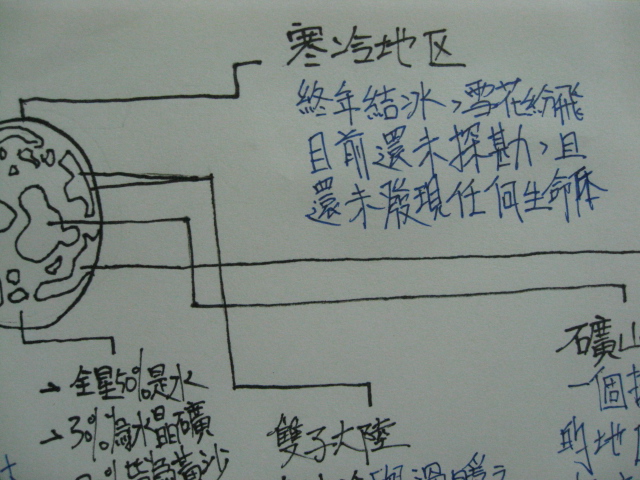 寒冷地区
終年結冰，雪花紛飛
目前還未探勘，且
還未發現任何生命体
礦山
一個
的地
→ 全星50%是水
→ 30%為水晶礦
黃沙
雙子大陸